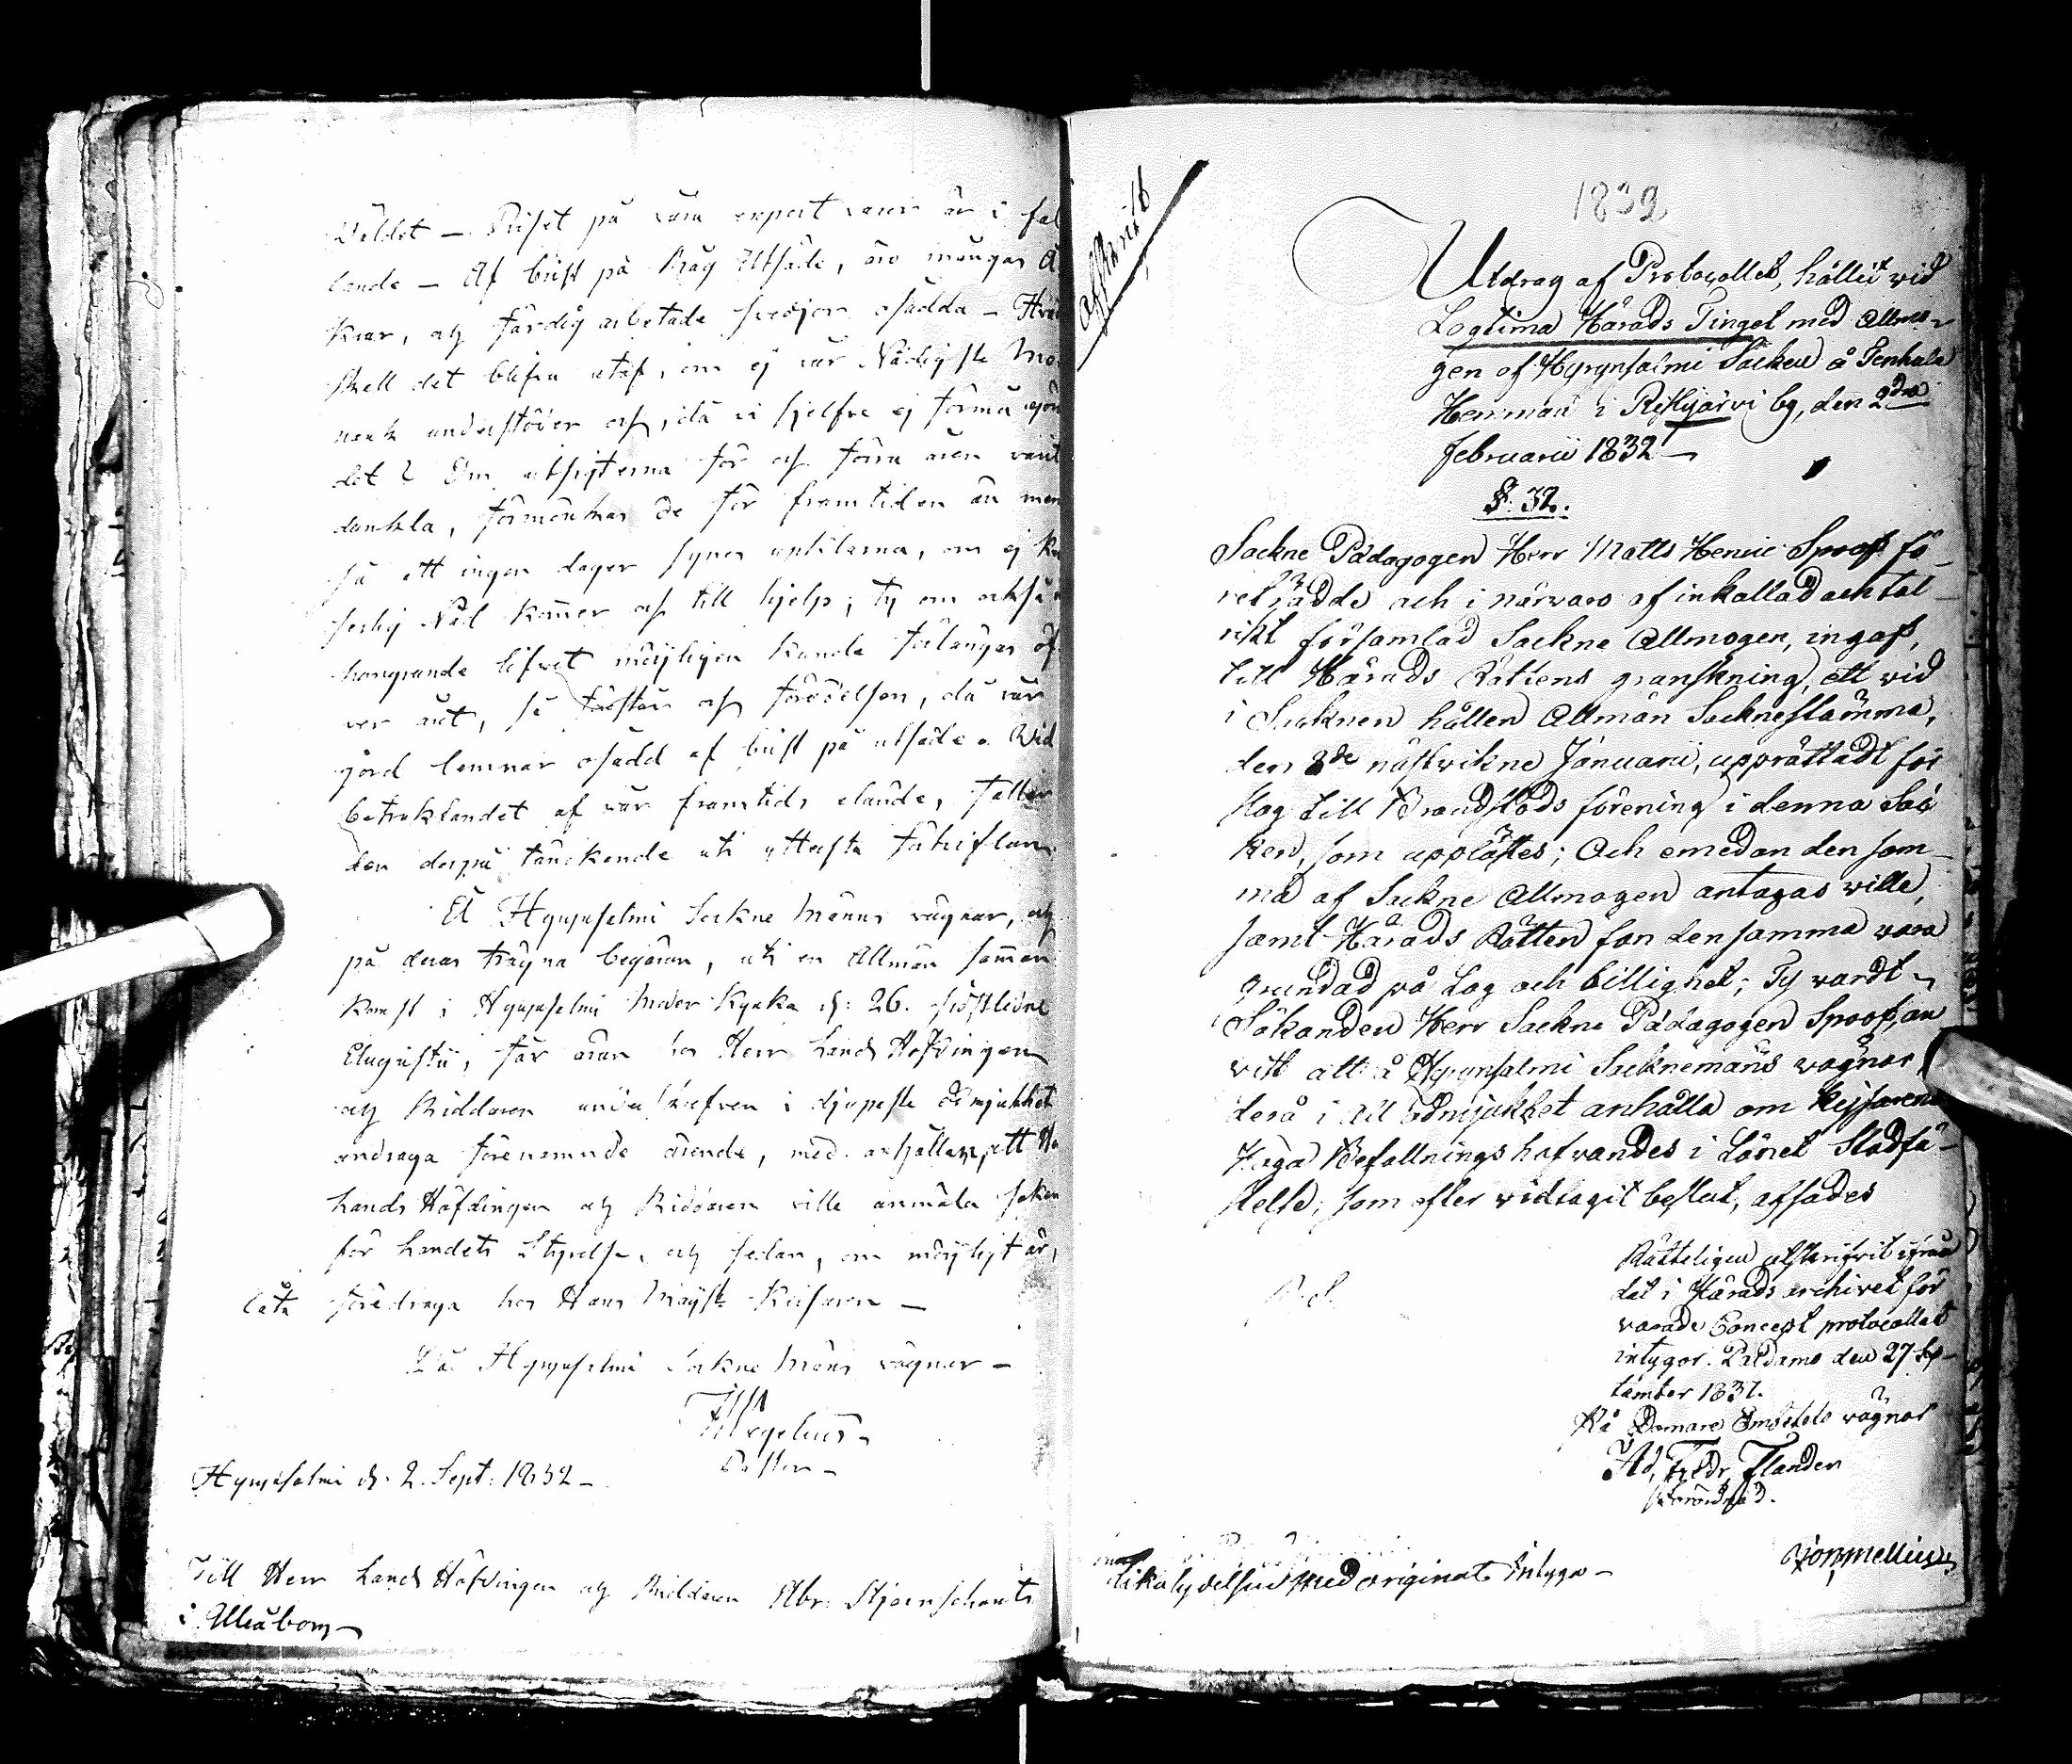 wäldet – Priset på våra export varor är i fal
lande – Af brist på Råg Utsäde, äro mångas Å
krar, och färdig arbetade svedjor osådda – Hvad
skall det blifva utaf, om ej vår Nådigste Mo
nark understöder oss, då vi sjelfve ej förmå göra
det? Om utsigterna för oss förra åren varit
dunkla, förmörkas de för framtiden än mer
så att ingen dager synes upklarna, om ej Kej
serlig Nåd kommer oss till hjelp; ty om också
hungrande lifvet möjligen kunde förlängas öf
ver året, så förestår oss förödelsen, då vår
jord lemnas osådd af brist på utsäde. Vid
betraktandet af vår framtids elände, faller
den derpå tänckande uti yttersta
Å Hyrynsalmi Sockne Männs vägnar, och
på deras trägna begäran, uti en Allmän samman
komst i Hyrynsalmi Moder Kyrka d: 26. sistledne
Augusti, får äran hos Herr Lands Höfdingen
och Riddaren underskrefven i djupeste ödmjukhet
andraga förenemnde ärende, med anhållan, att H
Lands Höfdingen och Riddaren ville anmäla saken
för Landets Styrelse, och sedan, om möjligt är,
låta föredraga hos Hans Majst Keisaren –
På Hyrynsalmi Sockne Mäns vägnar –
Wegelius
Pastor –
Hyrynsalmi d. 2. Sept: 1832 –
Till Herr Lands Höfdingen och Riddaren Abr: Stjernschantz
i Uleåborg
Afskrift
1832
Utdrag af Protocollet, hållit vid
Lagtima Härads Tinget med Allmo-
gen af Hyrynsalmi Socken å Tenhala
Hemman i Ristijärvi by, den 2dra
Februarii 1832 –
§. 32.
Sockne Pädagogen Herr Matts Henric Spoof fö-
reträdde och i närvaro af inkallad och tal-
rikt församlad Sockne Allmogen, ingaf,
till Härads Rättens granskning, ett vid
i Socknen hållen Allmän Socknestämma,
den 8de nästvikne Januarii, upprättadt för
slag till Brandstods förening i denna Soc
ken, som upplästes; Och emedan den sam-
ma af Sockne Allmogen antagas ville,
samt Härads Rätten fan densamma vara
grundad på Lag och billighet; Ty vardt
Sökanden Herr Sockne Pädagogen Spoof, an
vist att å Hyrynsalmi Socknemäns vägnar
derå i All Ödmjukhet anhålla om Kejsarens
Höga Befallningshafvandes i Länet Stadfä-
stelse; som efter vidtagit beslut, afsades
Rätteligen utskrifvit ifrån
det i Härads archivet för
varade Concept protocollet
intygar. Paldamo den 27 Sep-
tember 1832.
På Domare Embetets vägnar
Ad, Fredr, Flander
L.S.
Lika lydelsen med original. intyga –